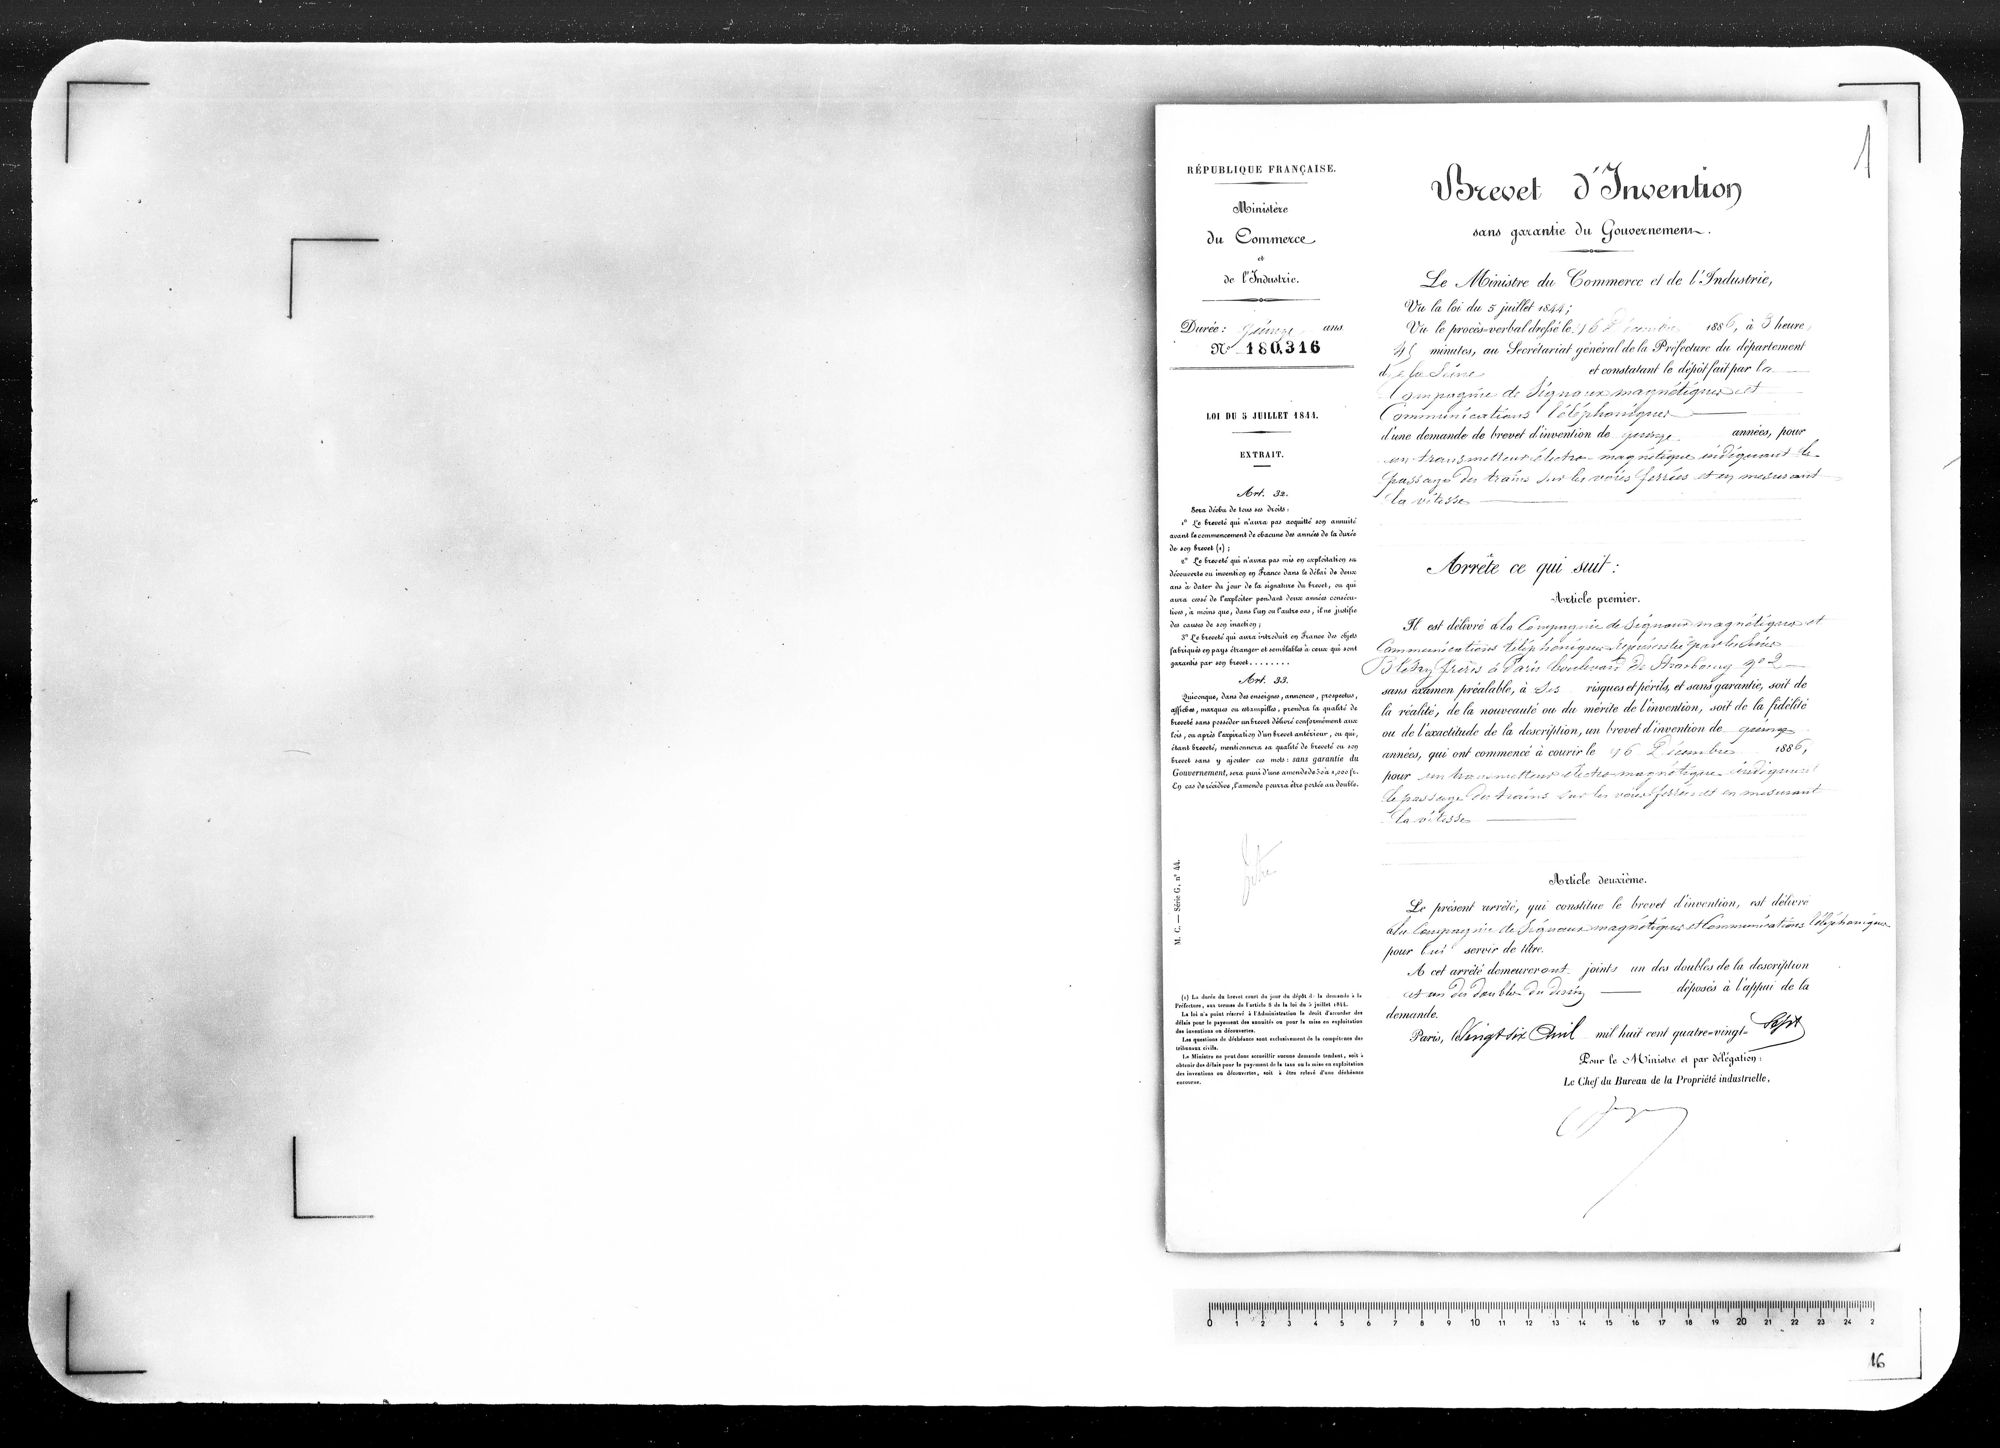 1
RÉPUBLIQUE FRANÇAISE.
Ministère
du Commerce
et
de l'Industrie.
Durée : quinze ans
N° 180,316
LOI DU 5 JUILLET 1844.
EXTRAIT.
Art. 32.
Sera déchu de tous ses droits :
1° Le breveté qui n'aura pas acquitté son annuité
avant le commencement de chacune des années de la durée
de son brevet (1) ;
2° Le breveté qui n'aura pas mis en exploitation sa
découverte ou invention en France dans le délai de deux
ans à dater du jour de la signature du brevet, ou qui
aura cessé de l'exploiter pendant deux années consécu-
tives, à moins que, dans l'un ou l'autre cas, il ne justifie
des causes de son inaction ;
3° Le breveté qui aura introduit en France des objets
fabriqués en pays étranger et semblables à ceux qui sont
garantis par son brevet........
Art. 33.
Quiconque, dans des enseignes, annonces, prospectus,
affiches, marques ou estampilles, prendra la qualité de
breveté sans posséder un brevet délivré conformément aux
lois, ou après l'expiration d'un brevet antérieur, ou qui,
étant breveté, mentionnera sa qualité de breveté ou son
brevet sans y ajouter ces mots : sans garantie du
Gouvernement, sera puni d'une amende de 50 à 1,000 fr.
En cas de récidive, l'amende pourra être portée au double.
M. C. — Série G, n° 44.
(1) La durée du brevet court du jour du dépôt de la demande à la
Préfecture, aux termes de l'article 8 de la loi du 5 juillet 1844.
La loi n'a point réservé à l'Administration le droit d'accorder des
délais pour le payement des annuités ou pour la mise en exploitation
des inventions ou découvertes.
Les questions de déchéance sont exclusivement de la compétence des
tribunaux civils.
Le Ministre ne peut donc accueillir aucune demande tendant, soit à
obtenir des délais pour le payement de la taxe ou la mise en exploitation
des inventions ou découvertes, soit à être relevé d'une déchéance
encourue.
Brevet d'Invention
sans garantie du Gouvernement.
Le Ministre du Commerce et de l'Industrie,
Vu la loi du 5 juillet 1844 ;
Vu le procès-verbal dressé le 16 Décembre 1886, à 3 heure
45 minutes, au Secrétariat général de la Préfecture du département
de la Seine et constatant le dépôt fait par la
Compagnie de Signaux magnétiques et
Communications téléphoniques
d'une demande de brevet d'invention de quinze années, pour
un transmetteur électro-magnétique indiquant le
passage des trains sur les voies ferrées et en mesurant
la vitesse
Arrête ce qui suit :
Article premier.
Il est délivré à la Compagnie de Signaux magnétiques et
Communications téléphoniques représentée par les Sieurs
Blétry frères à Paris boulevard de Strasbourg n° 2
sans examen préalable, à ses risques et périls, et sans garantie, soit de
la réalité, de la nouveauté ou du mérite de l'invention, soit de la fidélité
ou de l'exactitude de la description, un brevet d'invention de quinze
années, qui ont commencé à courir le 16 Décembre 1886,
pour un transmetteur électro-magnétique indiquant
le passage des trains sur les voies ferrées et en mesurant
la vitesse
Article deuxième.
Le présent arrêté, qui constitue le brevet d'invention, est délivré
à la Compagnie de Signaux magnétiques et Communications téléphoniques
pour lui servir de titre.
A cet arrêté demeureront joints un des doubles de la description
et un des doubles du dessin déposés à l'appui de la
demande.
Paris, le vingt-six Avril mil huit cent quatre-vingt-sept
Pour le Ministre et par délégation :
Le Chef du Bureau de la Propriété industrielle,
0 1 2 3 4 5 6 7 8 9 10 11 12 13 14 15 16 17 18 19 20 21 22 23 24 2
16